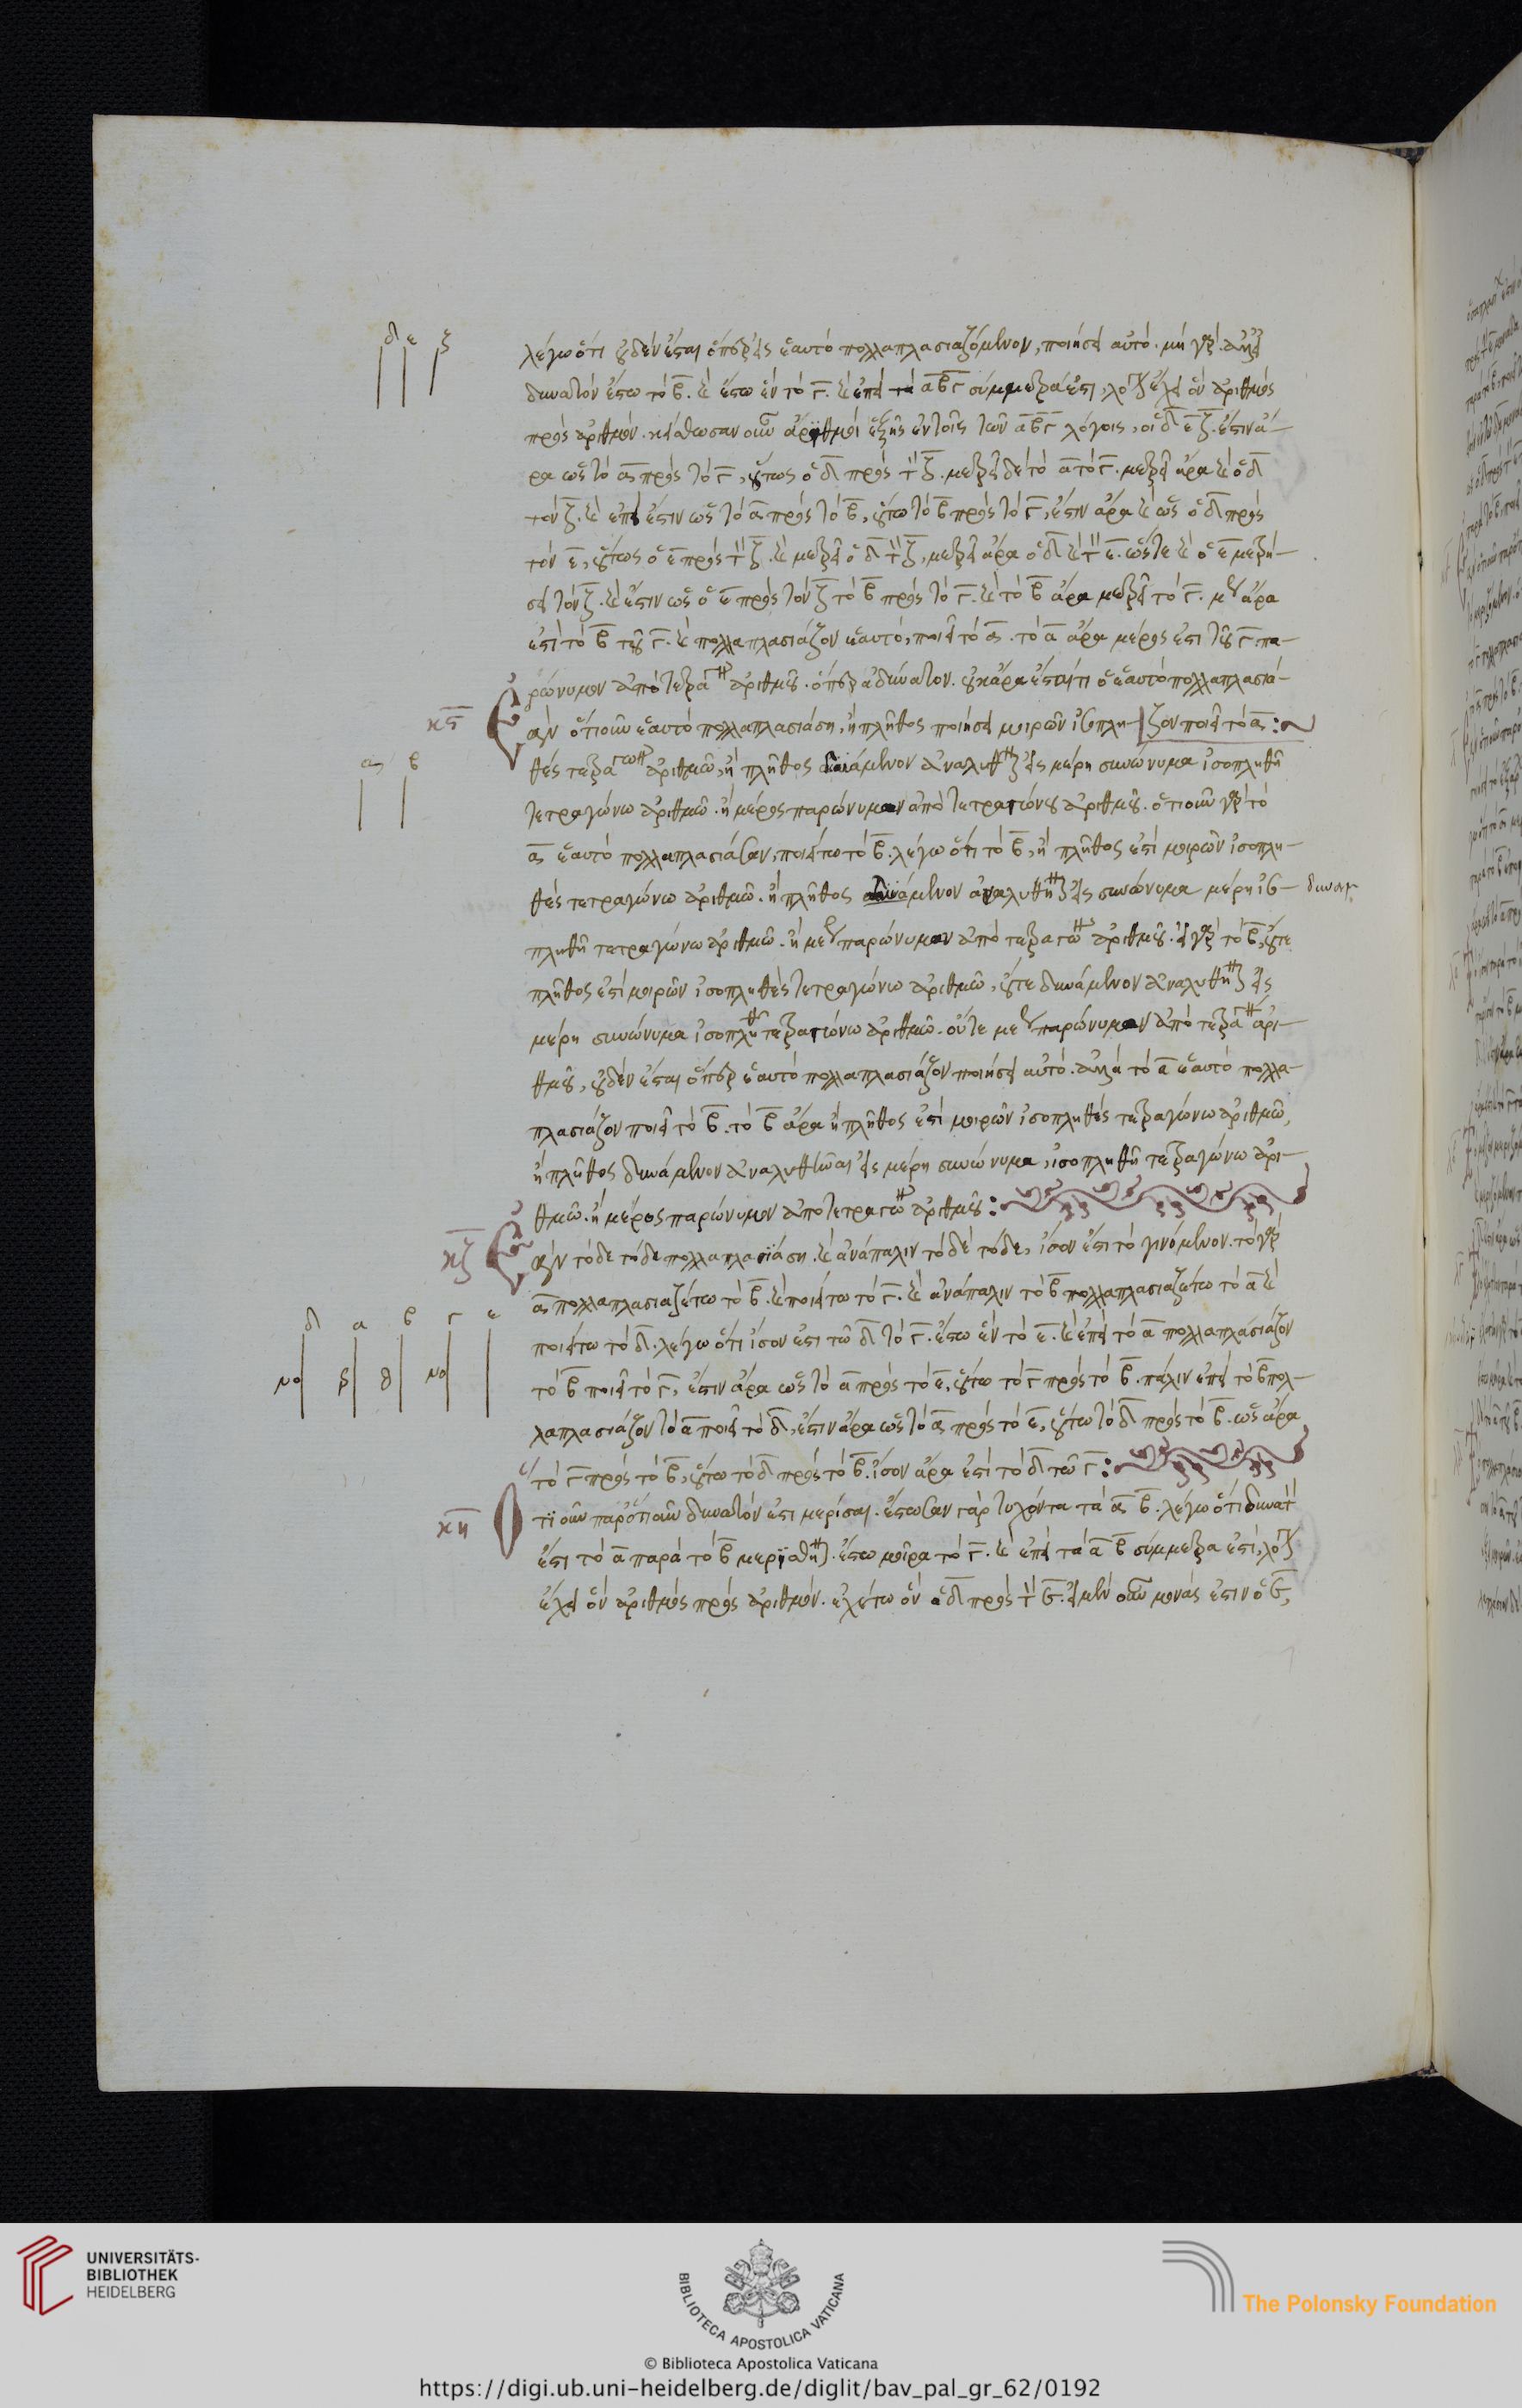 δ ε ζ
λέγω ὅτι οὐδέν ἐσται ὅπερ εἰς ἑαυτὸ πολλαπλασιαζόμενον, ποιήσει αὐτό. μὴ γὰρ. ἀλλ' εἰ
δυνατὸν ἔστω τὸ β. καὶ ἔστω ἓν τὸ γ. καὶ ἐπεὶ τὰ α β γ σύμμετρά ἐστι, λόγον ἔχει ὃν ἀριθμὸς
πρὸς ἀριθμόν. εἰλήφθωσαν οὖν ἀριθμοὶ ἑξῆς ἐν τοῖς τῶν α β γ λόγοις, οἱ δ ε ζ. ἔστιν ἄ-
ρα ὡς τὸ α πρὸς τὸ γ, οὕτως ὁ δ πρὸς τὸν ζ. μετρεῖ δὲ τὸ α τὸ γ. μετρεῖ ἄρα καὶ ὁ δ
τὸν ζ. καὶ ἐπεί ἐστιν ὡς τὸ α πρὸς τὸ β, οὕτω τὸ β πρὸς τὸ γ, ἔστιν ἄρα καὶ ὡς ὁ δ πρὸς
τὸν ε, οὕτως ὁ ε πρὸς τὸν ζ. καὶ μετρεῖ ὁ δ τὸν ζ, μετρεῖ ἄρα ὁ δ καὶ τὸν ε. ὥστε καὶ ὁ ε μετρή-
σει τὸν ζ. καὶ ἔστιν ὡς ὁ ε πρὸς τὸν ζ τὸ β πρὸς τὸ γ. καὶ τὸ β ἄρα μετρεῖ τὸ γ. μέρος ἄρα
ἐστὶ τὸ β τοῦ γ. καὶ πολλαπλασιάζον ἑαυτό, ποιεῖ τὸ α. τὸ α ἄρα μέρος ἐστὶ τοῦ γ πα-
ρώνυμον ἀπὸ τετραγώνου ἀριθμοῦ. ὅπερ ἀδύνατον. οὐκ ἄρα ἔσται τι ὃ ἑαυτὸ πολλαπλασιά-
κϛ ἐὰν ὁτιοῦν ἑαυτὸ πολλαπλασιάσῃ, ἢ πλῆθος ποιήσει μοιρῶν ἰσοπλη- ζον ποιεῖ τὸ α :~
α β
θὲς τετραγώνῳ ἀριθμῷ, ἢ πλῆθος δυνάμενον ἀναλυθῆναι εἰς μέρη συνώνυμα ἰσοπληθῆ
τετραγώνω ἀριθμῶ. ἢ μέρος παρώνυμον ἀπὸ τετραγώνου ἀριθμοῦ. ὁτιοῦν γὰρ τὸ
α ἑαυτὸ πολλαπλασιάσαν, ποιείτω τὸ β. λέγω ὅτι τὸ β, ἢ πλῆθος ἐστὶ μοιρῶν ἰσοπλη-
θὲς τετραγώνω ἀριθμῶ. ἢ πλῆθος δυνάμενον ἀναλυθῆναι εἰς συνώνυμα μέρη ἰσο- δυναμ
πληθῆ τετραγώνω ἀριθμῶ. ἢ μέρος παρώνυμον ἀπὸ τετραγώνου ἀριθμοῦ. εἰ γὰρ τὸ β, οὔτε
πλῆθος ἐστὶ μοιρῶν ἰσοπληθὲς τετραγώνω ἀριθμῶ, οὔτε δυνάμενον ἀναλυθῆναι εἰς
μέρη συνώνυμα ἰσοπληθῆ τετραγώνω ἀριθμῶ. οὔτε μέρος παρώνυμον ἀπὸ τετραγώνου ἀρι-
θμοῦ, οὐδέν ἐσται ὅπερ ἑαυτὸ πολλαπλασιάζον ποιήσει αὐτό. ἀλλὰ τὸ α ἑαυτὸ πολλα-
πλασιάζον ποιεῖ τὸ β. τὸ β ἄρα ἢ πλῆθος ἐστὶ μοιρῶν ἰσοπληθὲς τετραγώνω ἀριθμῶ,
ἢ πλῆθος δυνάμενον ἀναλυθῆναι εἰς μέρη συνώνυμα, ἰσοπληθῆ τετραγώνω ἀρι-
θμῶ. ἢ μέρος παρώνυμον ἀπὸ τετραγώνου ἀριθμοῦ :
κζ ἐὰν τόδε τόδε πολλαπλασιάση. καὶ ἀνάπαλιν τὸ δὲ τόδε, ἴσον ἐστὶ τὸ γινόμενον. τὸ γὰρ
α πολλαπλασιαζέτω τὸ β. καὶ ποιείτω τὸ γ. καὶ ἀνάπαλιν τὸ β πολλαπλασιαζέτω τὸ α καὶ
δ α β γ ε
ποιείτω τὸ δ. λέγω ὅτι ἴσον ἐστὶ τῶ δ τὸ γ. ἔστω ἓν τὸ ε. καὶ ἐπεὶ τὸ α πολλαπλασιάζον
τὸ β ποιεῖ τὸ γ, ἔστιν ἄρα ὡς τὸ α πρὸς τὸ ε, οὕτω τὸ γ πρὸς τὸ β. πάλιν ἐπεὶ τὸ β πολ-
λαπλασιάζον τὸ α ποιεῖ τὸ δ, ἔστιν ἄρα ὡς τὸ α πρὸς τὸ ε, οὕτω τὸ δ πρὸς τὸ β. ὡς ἄρα
τὸ γ πρὸς τὸ β, οὕτω τὸ δ πρὸς τὸ β. ἴσον ἄρα ἐστὶ τὸ δ τῶ γ :
κη ὁτιοῦν παρ' ὁτιοῦν δυνατόν ἐστι μερίσαι. ἔστωσαν γὰρ τυχόντα τὰ α β. λέγω ὅτι δυνατόν
ἐστι τὸ α παρὰ τὸ β μερισθῆναι. ἔστω μοῖρα τὸ γ. καὶ ἐπεὶ τὰ α β σύμμετρα ἐστὶ, λόγον
ἔχει ὃν ἀριθμὸς πρὸς ἀριθμόν. ἐχέτω ὃν ὁ δ πρὸς τὸν ϛ. εἰ μὲν οὖν μονάς ἐστιν ὁ ϛ,
UNIVERSITÄTS-
BIBLIOTHEK
HEIDELBERG
BIBLIOTECA APOSTOLICA VATICANA
The Polonsky Foundation
© Biblioteca Apostolica Vaticana
https://digi.ub.uni-heidelberg.de/diglit/bav_pal_gr_62/0192